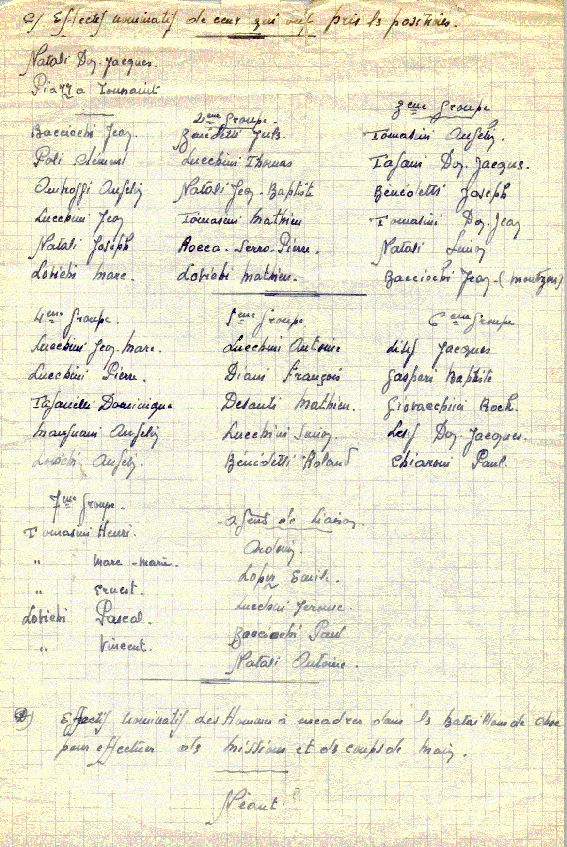 c) Effectif nominatif de ceux qui ont pris les positions.
Natali Don Jacques.
Piazza Toussaint
Bacciochi Jean
Poli Clément
Ambroggi Angelin
Lucchini Jean
Natali Joseph
Lovichi Marc.
2ème Groupe
Benedetti Jules.
Lucchini Thomas
Natali Jean-Baptiste
Tomasini Mathieu
Rocca-Serra-Pierre.
Lovichi Mathieu.
3ème Groupe
Tomasini Angelin
Tafani Don Jacques.
Benedetti Joseph
Tomasini Don Jean
Natali
Bacciochi Jean
4ème Groupe.
Lucchini Jean Marc.
Lucchini Pierre.
Tafanelli Dominique
Mangnani Angelin
Lovichi Angelin.
5ème Groupe
Lucchini Antoine
Diani François
Desanti Mathieu.
Lucchini
Benedetti Roland
6ème Groupe
Jacques
Gasperi Baptiste
Giovacchini Roch.
Don Jacques.
Chiaroni Paul.
7ème Groupe.
Tomasini Henri.
" Marc-Marie.
" Ernest.
Lovichi Pascal.
" Vincent.
Agents de liaison.
Lopez Emile.
Lucchini Jerome.
Bacciochi Paul
Natali Antoine.
d) Effectif nominatif des Hommes à encadrer dans le bataillon de choc
pour effectuer des missions et des coups de main.
Néant